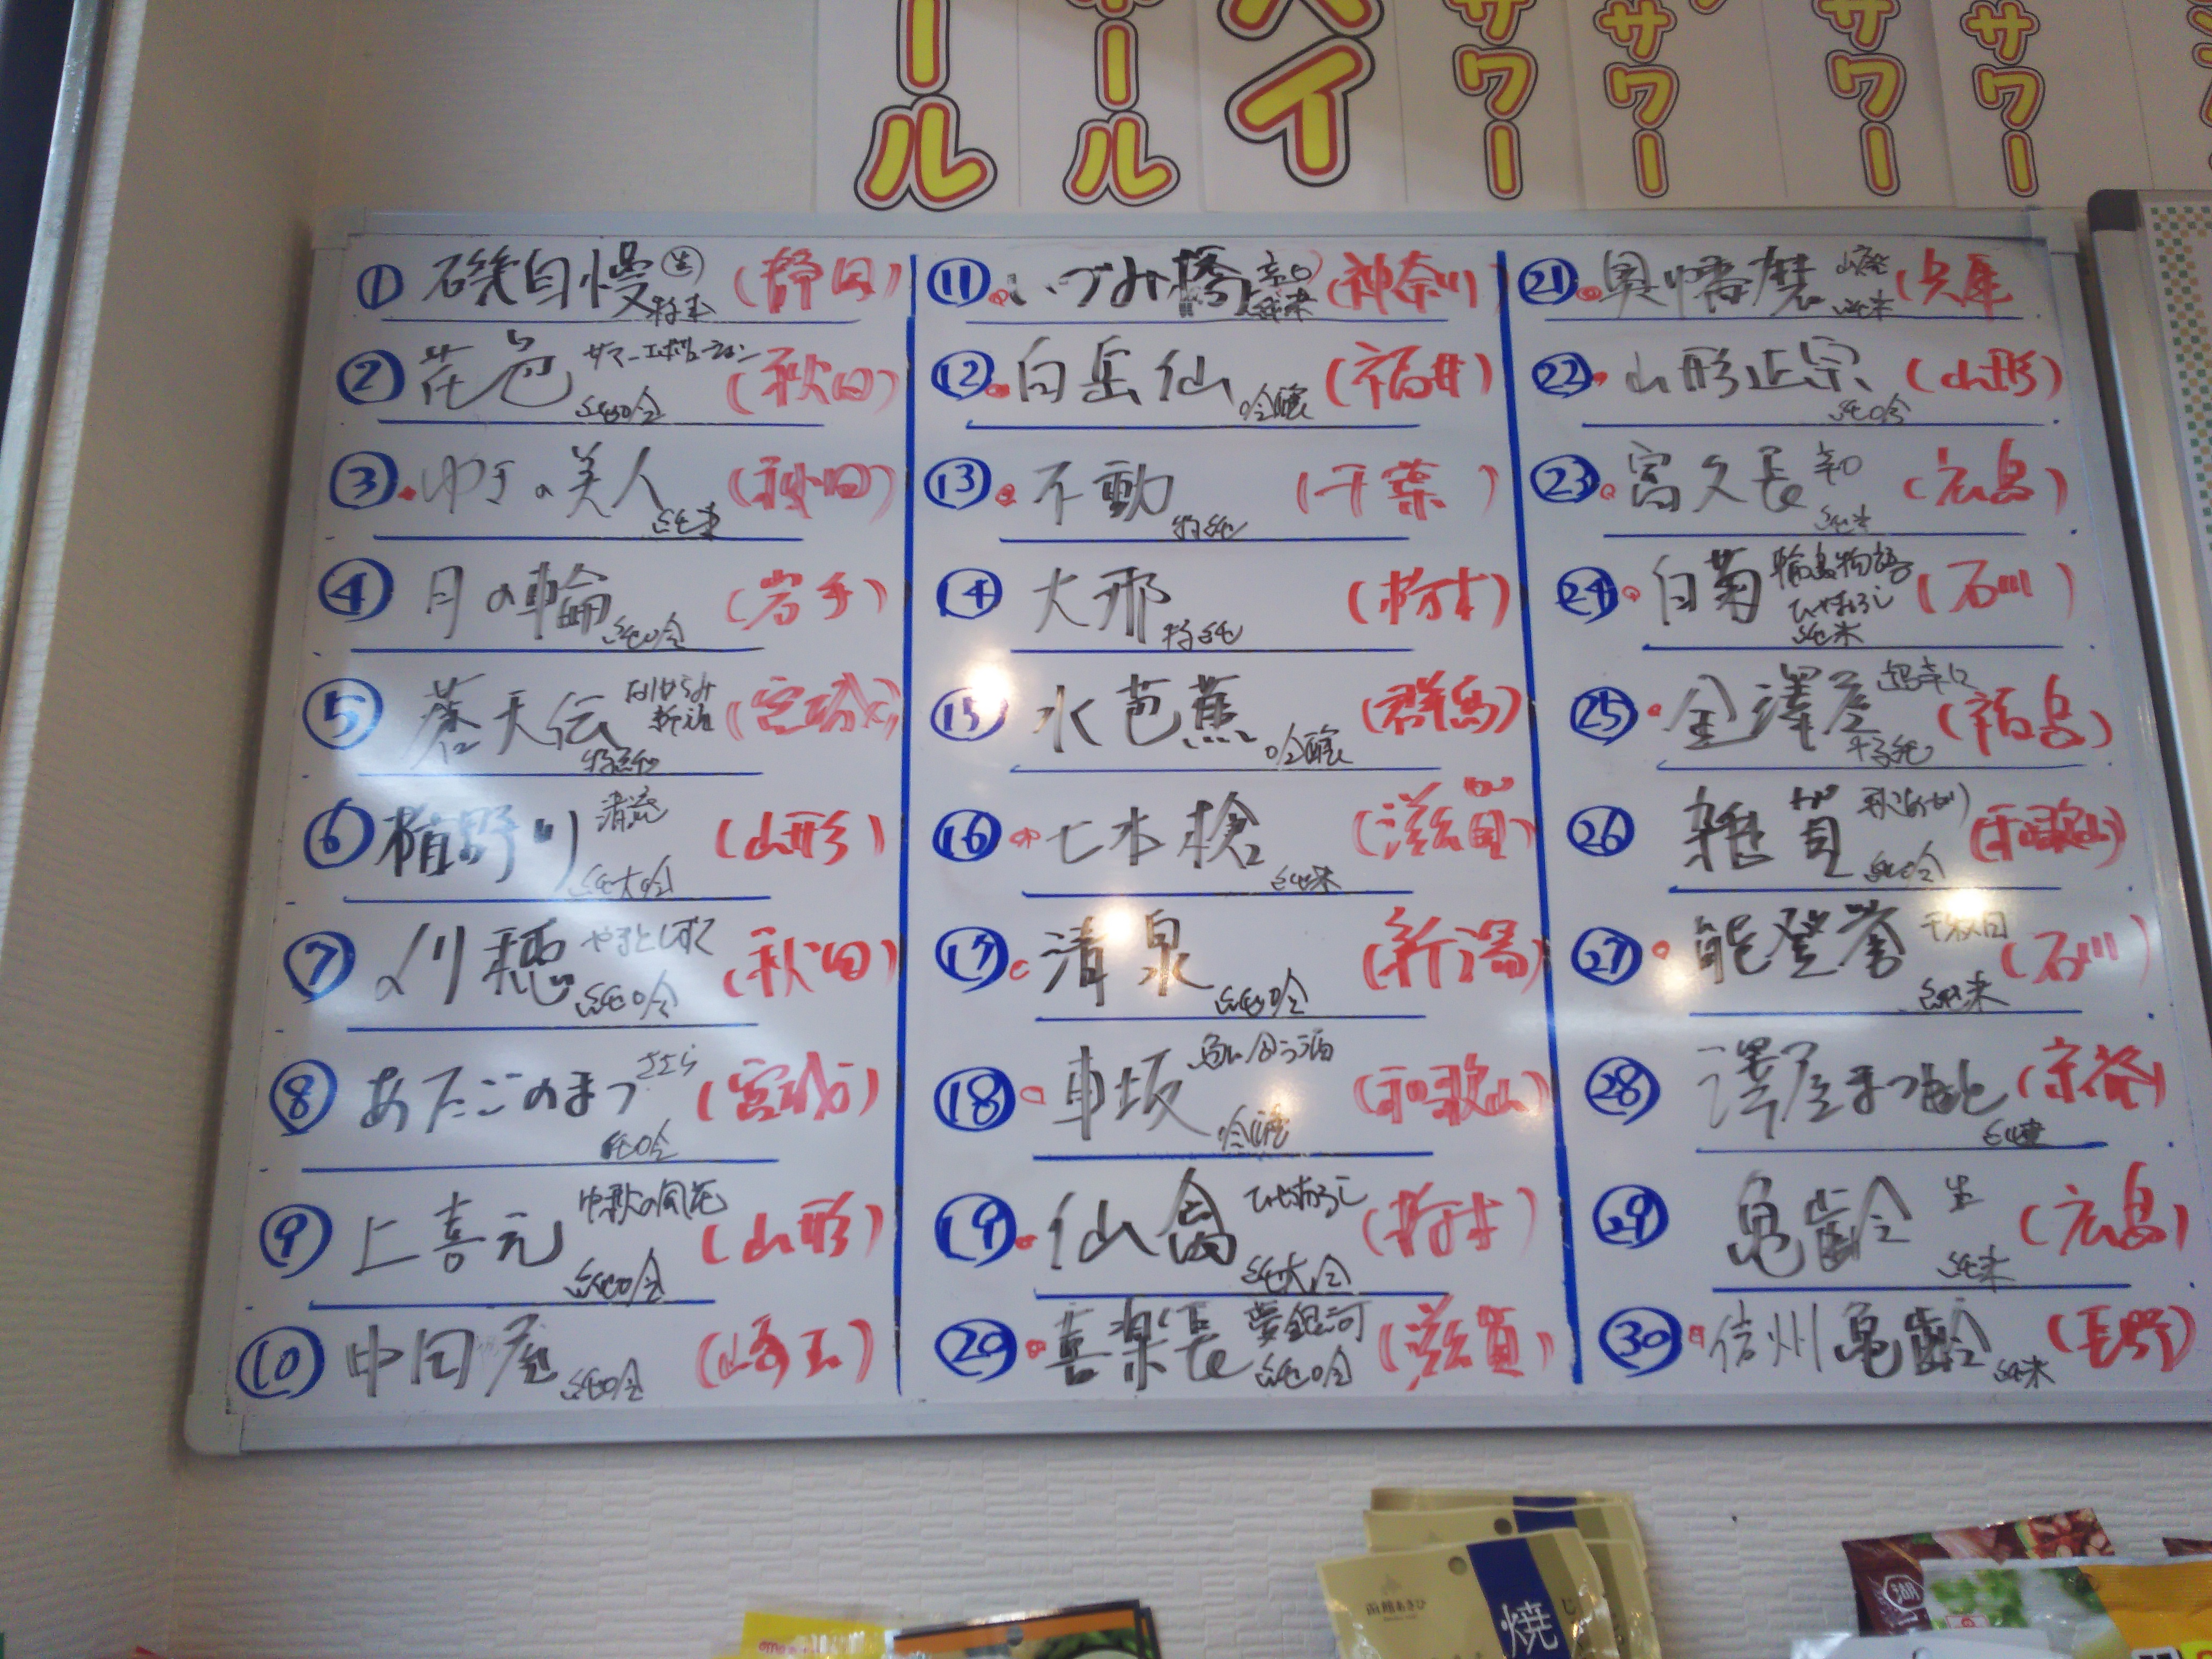 ール
ホール
ハイ
サワー
サワー
サワー
サワー
① 磯自慢 生 特本 (静岡)
② 花邑 サマー 純吟 (秋田)
③ ゆきの美人 純米 (秋田)
④ 月の輪 純吟 (岩手)
⑤ 蒼天伝 特純 (宮城)
⑥ 楯野川 清流 純大吟 (山形)
⑦ 刈穂 やまとしずく 純吟 (秋田)
⑧ あたごのまつ ささら 純吟 (宮城)
⑨ 上喜元 中秋の風花 純吟 (山形)
⑩ 中田屋 純吟 (埼玉)
⑪ いづみ橋 辛口 純米 (神奈川)
⑫ 白岳仙 吟醸 (福井)
⑬ 不動 特純 (千葉)
⑭ 大那 特純 (栃木)
⑮ 水芭蕉 吟醸 (群馬)
⑯ 七本槍 純米 (滋賀)
⑰ 清泉 純吟 (新潟)
⑱ 車坂 魚に合う酒 吟醸 (和歌山)
⑲ 仙禽 ひやおろし 純大吟 (栃木)
⑳ 喜楽長 夢銀河 純吟 (滋賀)
㉑ 奥播磨 山廃 純米 (兵庫)
㉒ 山形正宗 純吟 (山形)
㉓ 富久長 辛口 純米 (広島)
㉔ 白菊 輪島物語 ひやおろし 純米 (石川)
㉕ 金澤屋 超辛口 特純 (福島)
㉖ 雑賀 秋あがり 純吟 (和歌山)
㉗ 能登誉 千秋田 純米 (石川)
㉘ 澤屋まつもと (京都)
㉙ 亀齢 生 純米 (広島)
㉚ 信州亀齢 純米 (長野)
函館あさひ
焼
湖